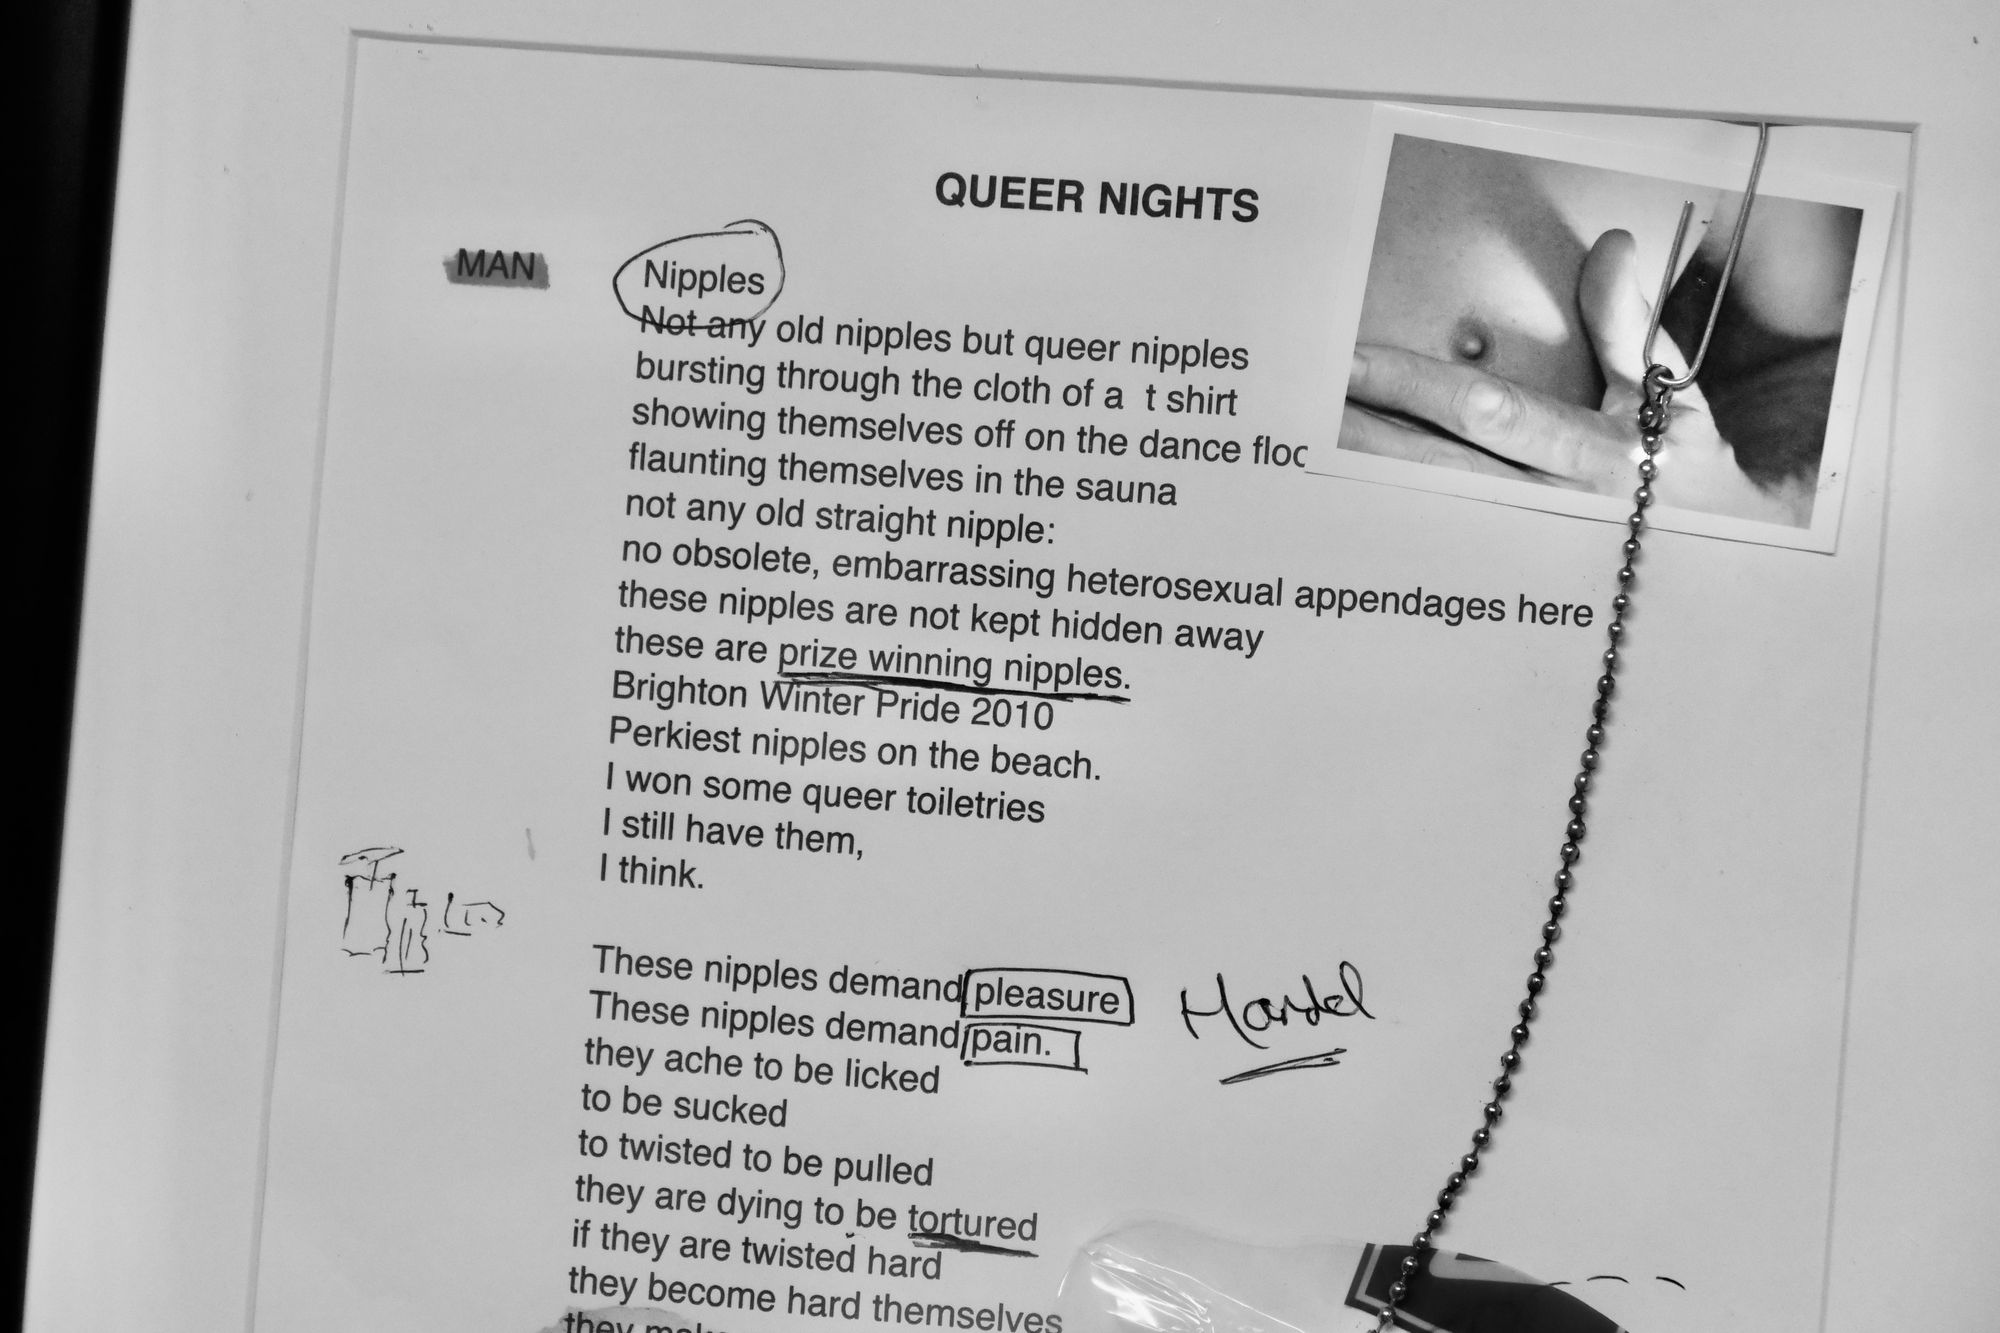 QUEER NIGHTS
MAN
Nipples
Not any old nipples but queer nipples
bursting through the cloth of a t shirt
showing themselves off on the dance
flaunting themselves in the sauna
not any old straight nipple:
no obsolete, embarrassing heterosexual appendages here
these nipples are not kept hidden away
these are prize winning nipples.
Brighton Winter Pride 2010
Perkiest nipples on the beach.
I won some queer toiletries
I still have them,
I think.
These nipples demand pleasure
These nipples demand pain.
they ache to be licked
to be sucked
to twisted to be pulled
they are dying to be tortured
if they are twisted hard
they become hard themselves
they